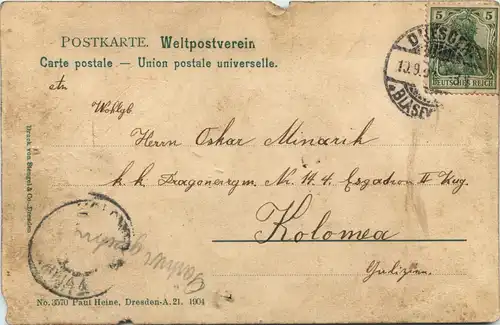 POSTKARTE. Weltpostverein
Carte postale — Union postale universelle.
An
Wohlgb.
Herrn Oskar Minarik
k. k. Dragonerrgm. Nr. 14. 4. Esgadron II Zug.
Kolomea
Galizien.
Druck von Stengel & Co., Dresden
No. 3570 Paul Heine, Dresden-A. 21. 1904
5 5
DEUTSCHES REICH
DRESDEN
10.9.
BLASEW